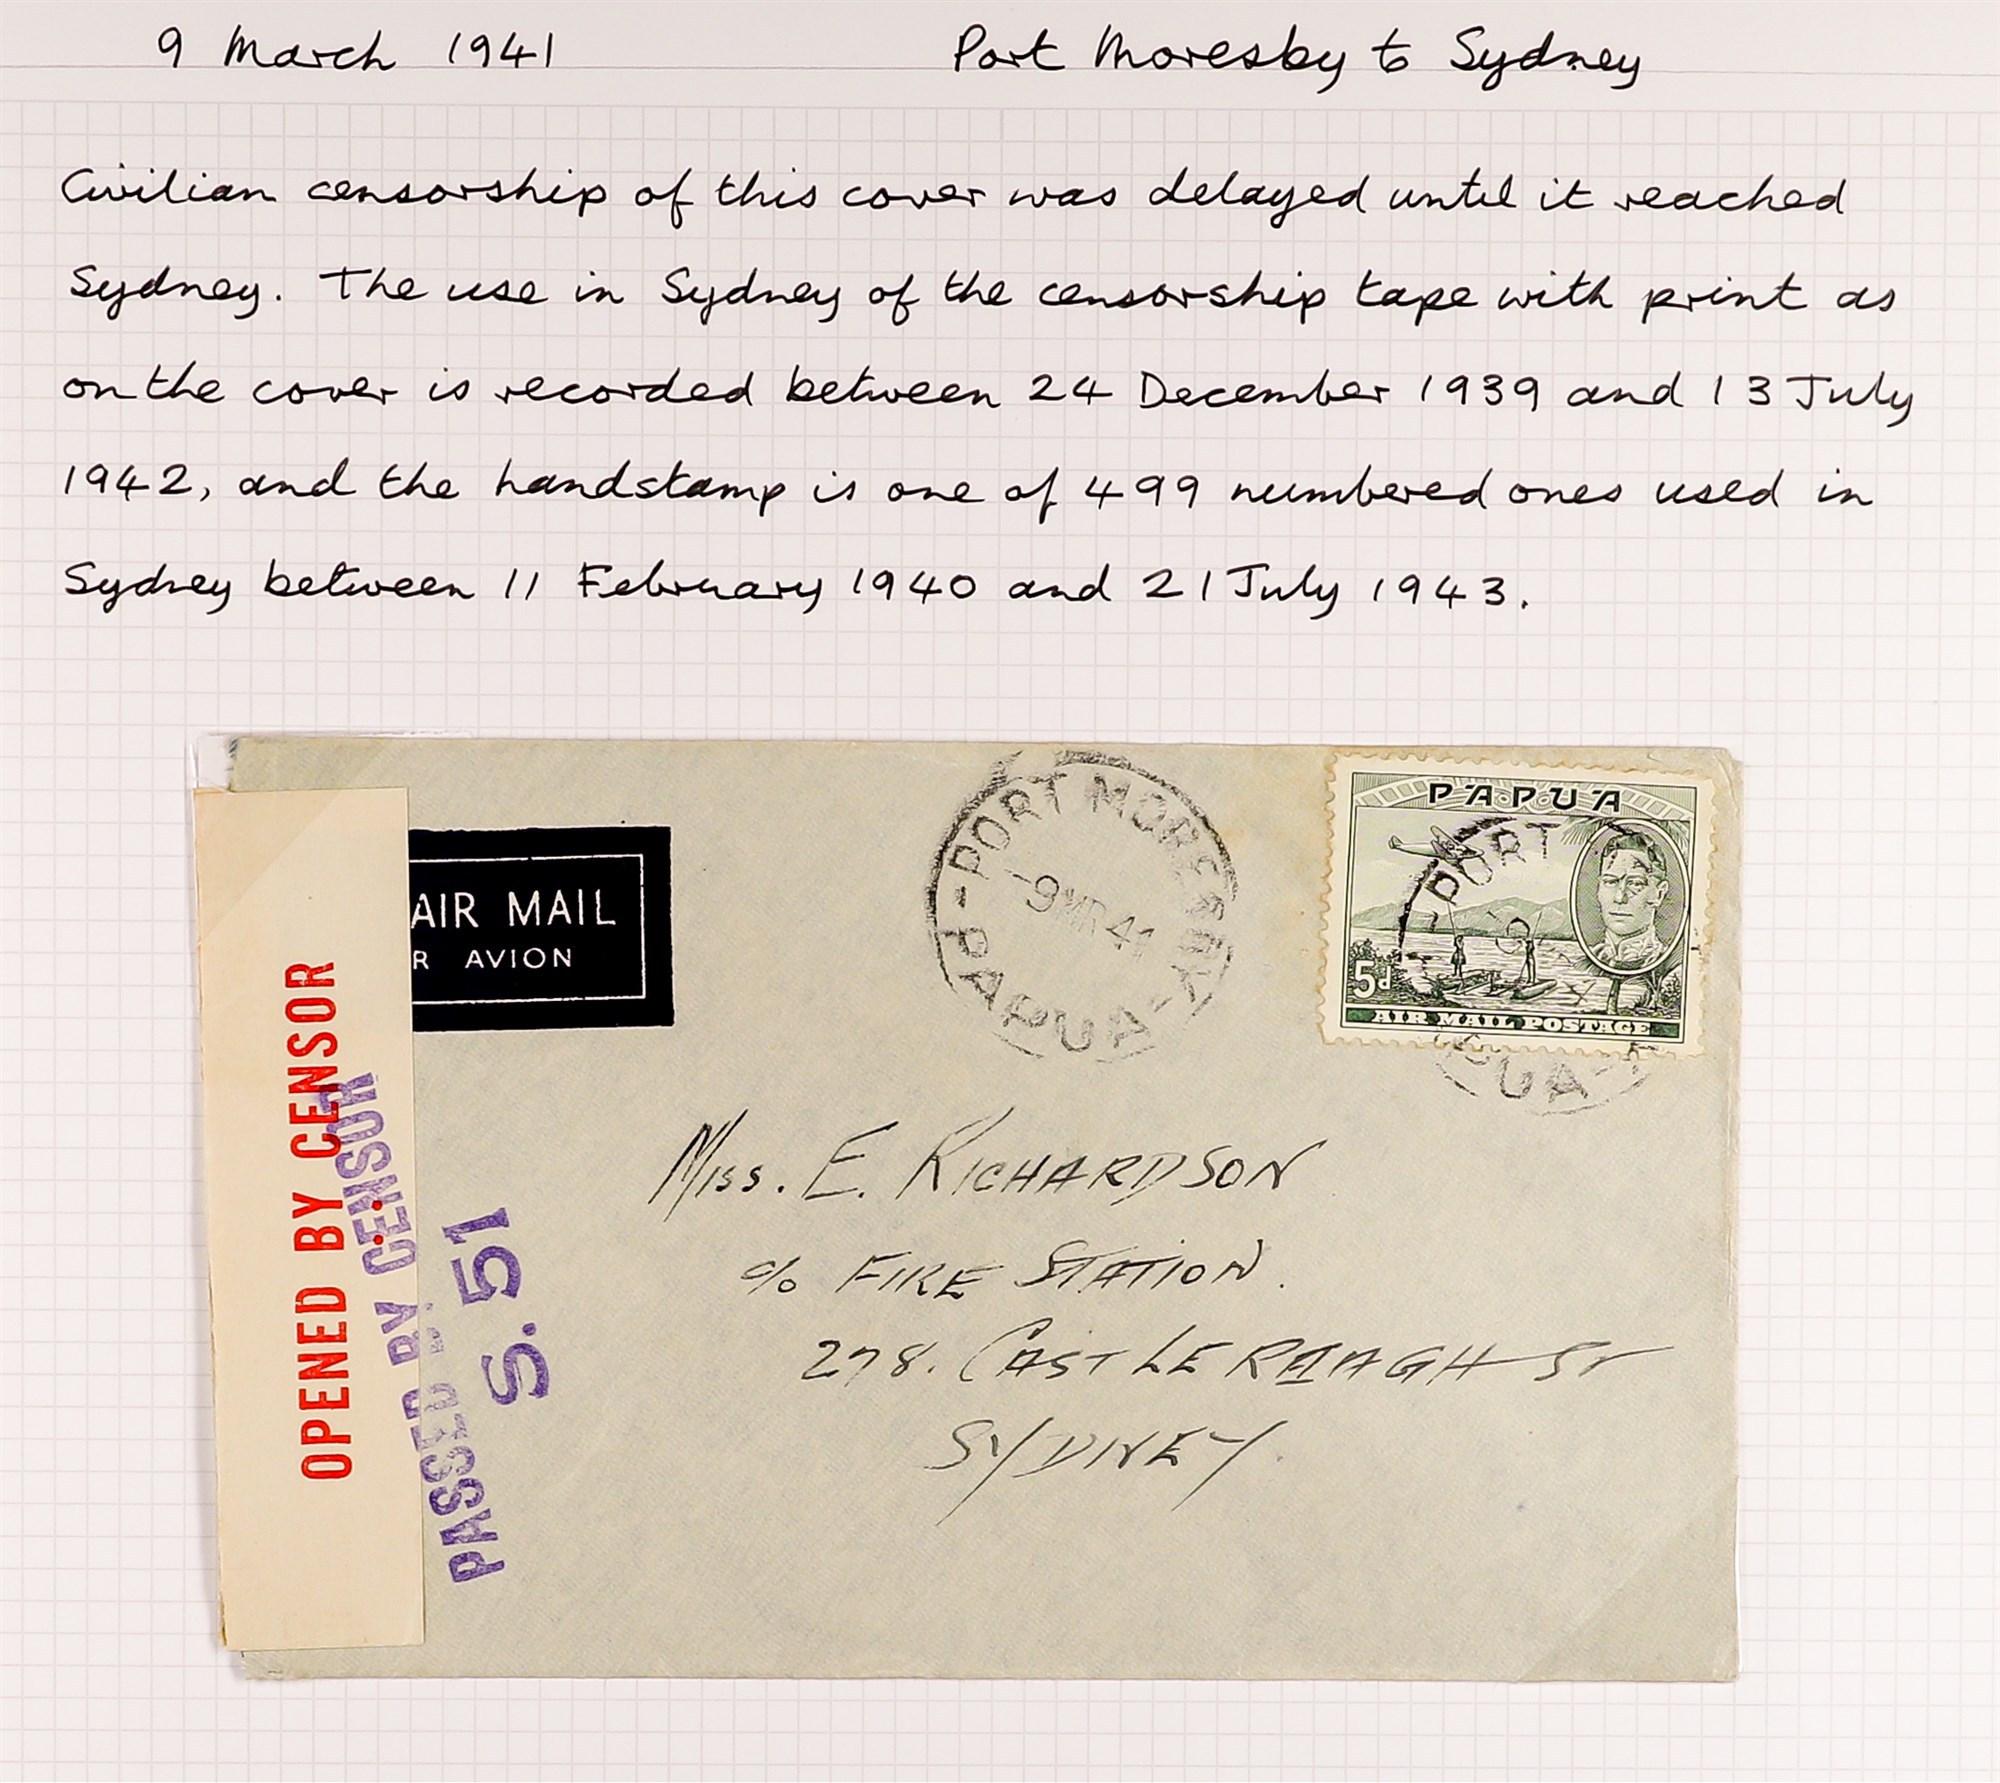 9 March 1941 Port Moresby to Sydney
Civilian censorship of this cover was delayed until it reached
Sydney. The use in Sydney of the censorship tape with print as
on the cover is recorded between 24 December 1939 and 13 July
1942, and the handstamp is one of 499 numbered ones used in
Sydney between 11 February 1940 and 21 July 1943.
AIR MAIL
R AVION
PORT MORESBY
-9 MR 41
PAPUA
PAPUA
PORT
5d
AIR MAIL POSTAGE
PUA
OPENED BY CENSOR
PASSED BY CENSOR
S. 51
Miss. E. RICHARDSON
c/o FIRE STATION.
278. CASTLEREAGH St
SYDNEY.